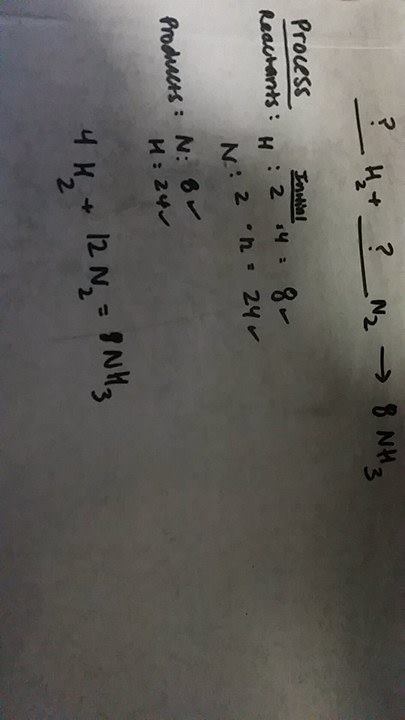 ? ?
___ H₂ + ___ N₂ → 8 NH₃
Process
Initial
Reactants: H: 2 · 4 = 8 ✓
N: 2 · 12 = 24 ✓
Products: N: 8 ✓
H: 24 ✓
4 H₂ + 12 N₂ = 8 NH₃